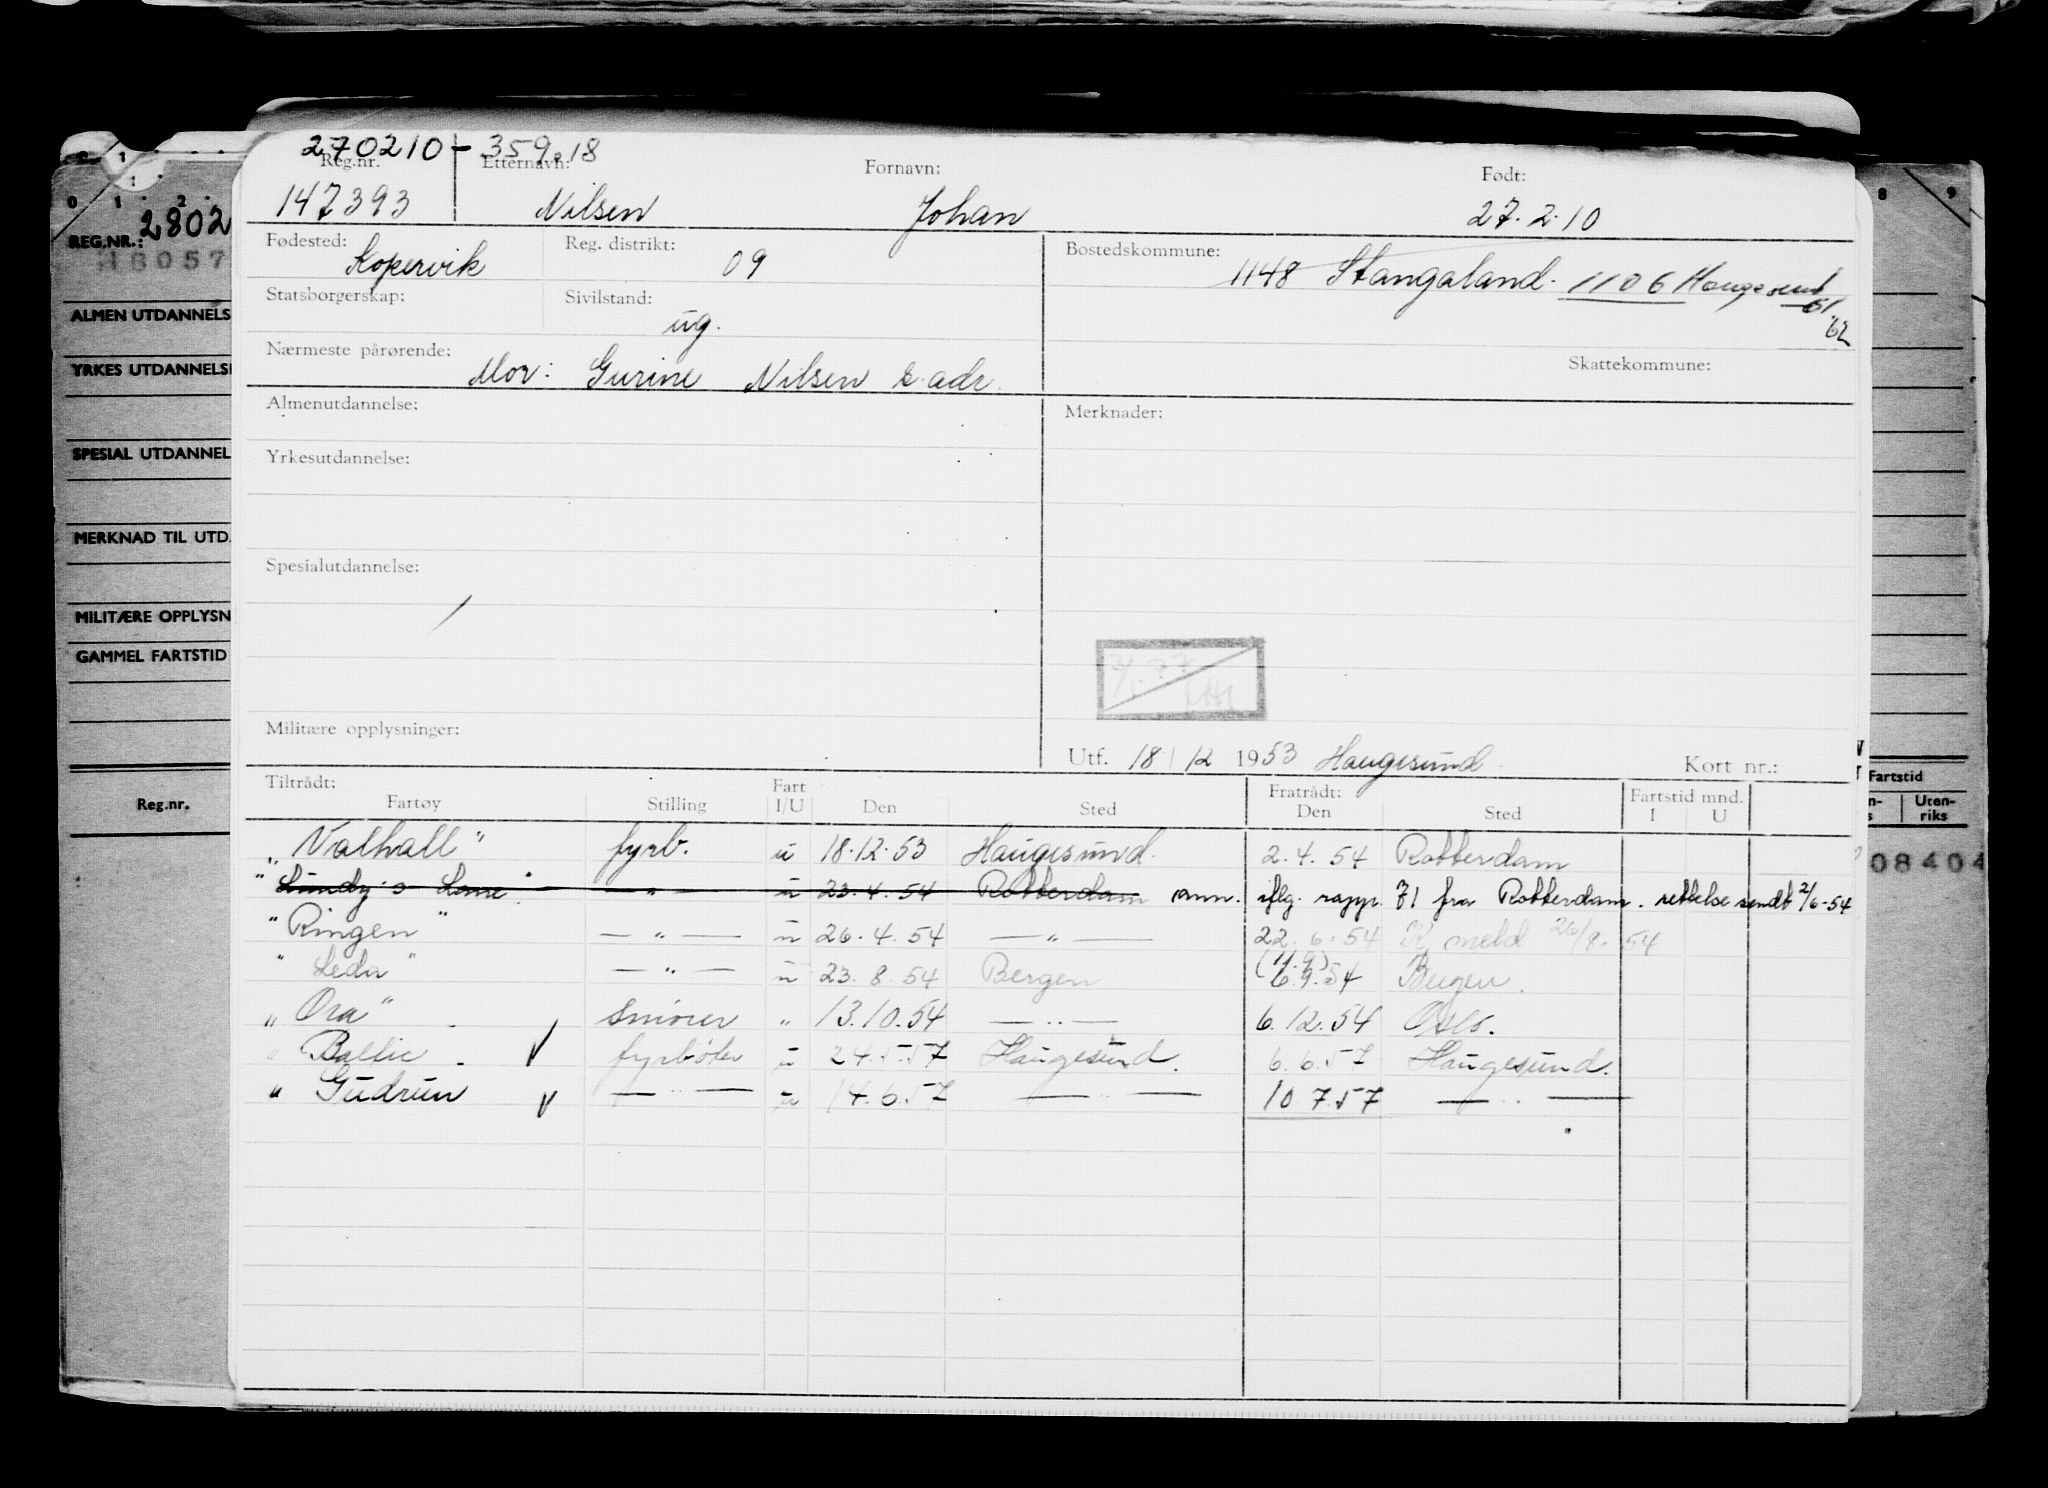 270210-359.18
Reg.nr. Etternavn: Fornavn: Født:
147393 Nilsen Johan 27.2.10
Fødested: Kopervik Reg. distrikt: 09 Bostedskommune: 1148 Stangaland. 1106 Haugesund
61
62
Statsborgerskap: Sivilstand: ug.
Nærmeste pårørende: Mor: Gurine Nilsen s. adr. Skattekommune:
Almenutdannelse: Merknader:
Yrkesutdannelse:
Spesialutdannelse:
Militære opplysninger: Utf. 18/12 1953 Haugesund Kort nr.:
Tiltrådt: Fart Fratrådt: Fartstid mnd.
Fartøy Stilling I/U Den Sted Den Sted I U
„Valhall" fyrb. u 18.12.53 Haugesund. 2.4.54 Rotterdam
" Lundy's Lane " — " — u 23.4.54 Rotterdam ann. iflg. rapp. 71 fra Rotterdam. rettelse sendt 2/6-54
"Ringen" — " — u 26.4.54 — " — 22.6.54 K meld 26/8.54
" Leda " — " — u 23.8.54 Bergen (11.9) 6.9.54 Bergen.
„ Ora" smører " 13.10.54 — " — 6.12.54 Oslo.
" Baltic fyrbøter u 24.5.57 Haugesund. 6.6.57 Haugesund.
" Gudrun — " — u 14.6.57 — " — 10.7.57 — " —
0 1 2
REG.NR.: 2802
18057
ALMEN UTDANNELS
YRKES UTDANNELS
SPESIAL UTDANNEL
MERKNAD TIL UTD.
MILITÆRE OPPLYSN
GAMMEL FARTSTID
Reg.nr.
8 9
Fartstid
n-
s
Uten-
riks
08404